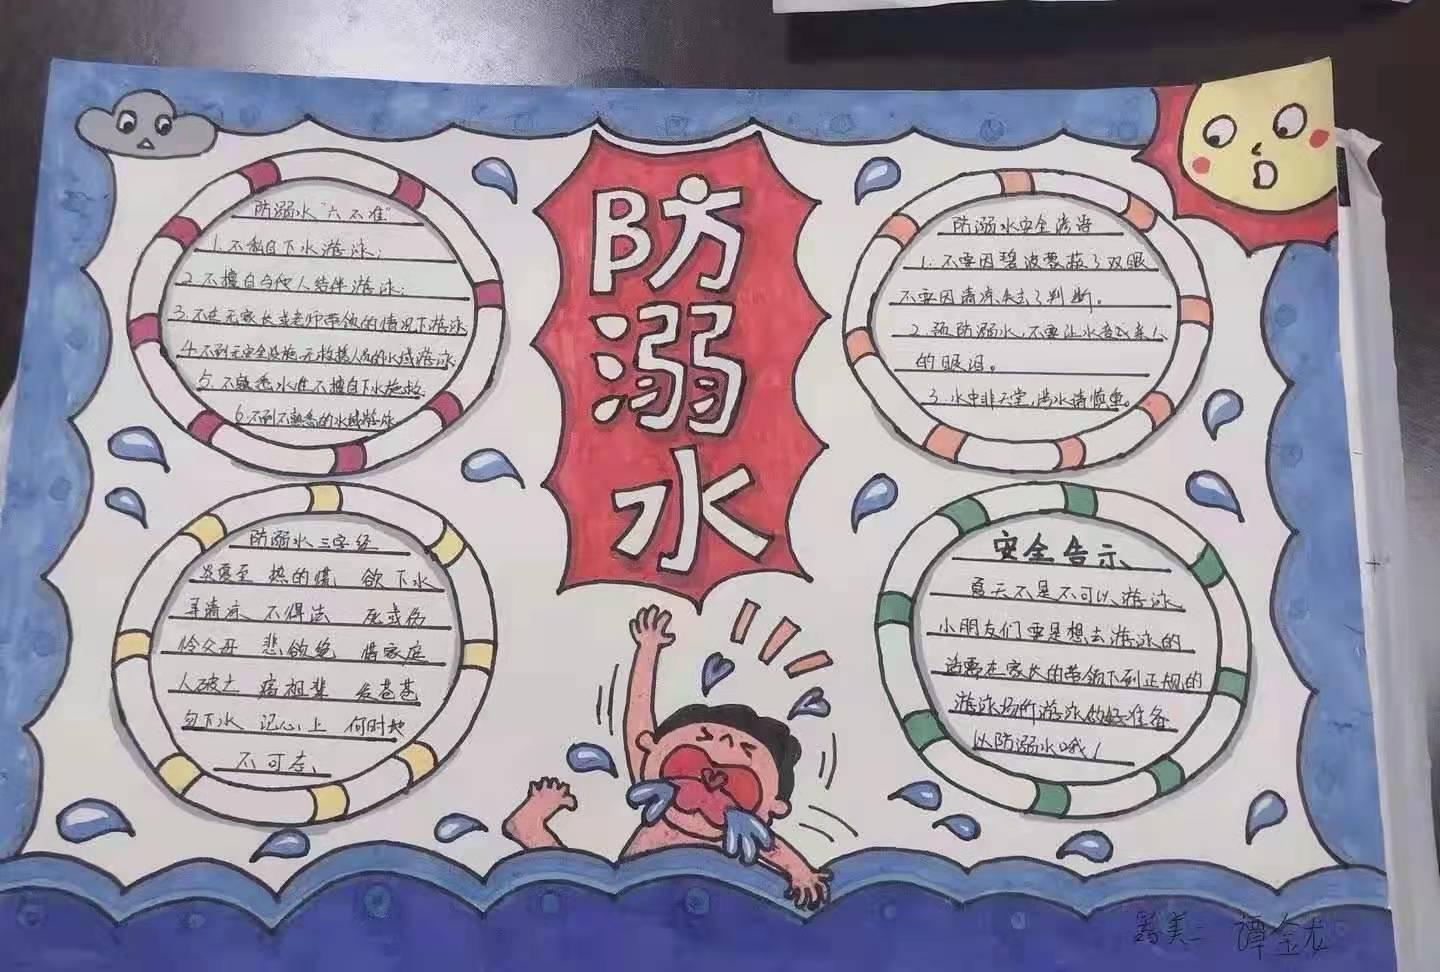 防溺水
防溺水"六不准"
1.不私自下水游泳;
2.不擅自与他人结伴游泳;
3.不在无家长或老师带领的情况下游泳
4.不到无安全设施、无救援人员的水域游泳
5.不熟悉水性不擅自下水施救
6.不到不熟悉的水域游泳
防溺水三字经
炎夏至 热的慌 欲下水
寻清凉 不得法 死或伤
怜父母 悲欲绝 惜家庭
人破亡 痛祖辈 发苍苍
勿下水 记心上 何时地
不可忘
防溺水安全
1.不要因碧波蒙蔽了双眼
不要因清凉失去了判断。
2.预防溺水,不要让水变成亲人
的眼泪。
3.水中非天堂,涉水请慎重。
安全告示
夏天不是不可以游泳
小朋友们要是想去游泳的
话要在家长的带领下到正规的
游泳场所游泳做好准备
以防溺水哦!
美二 谭金龙